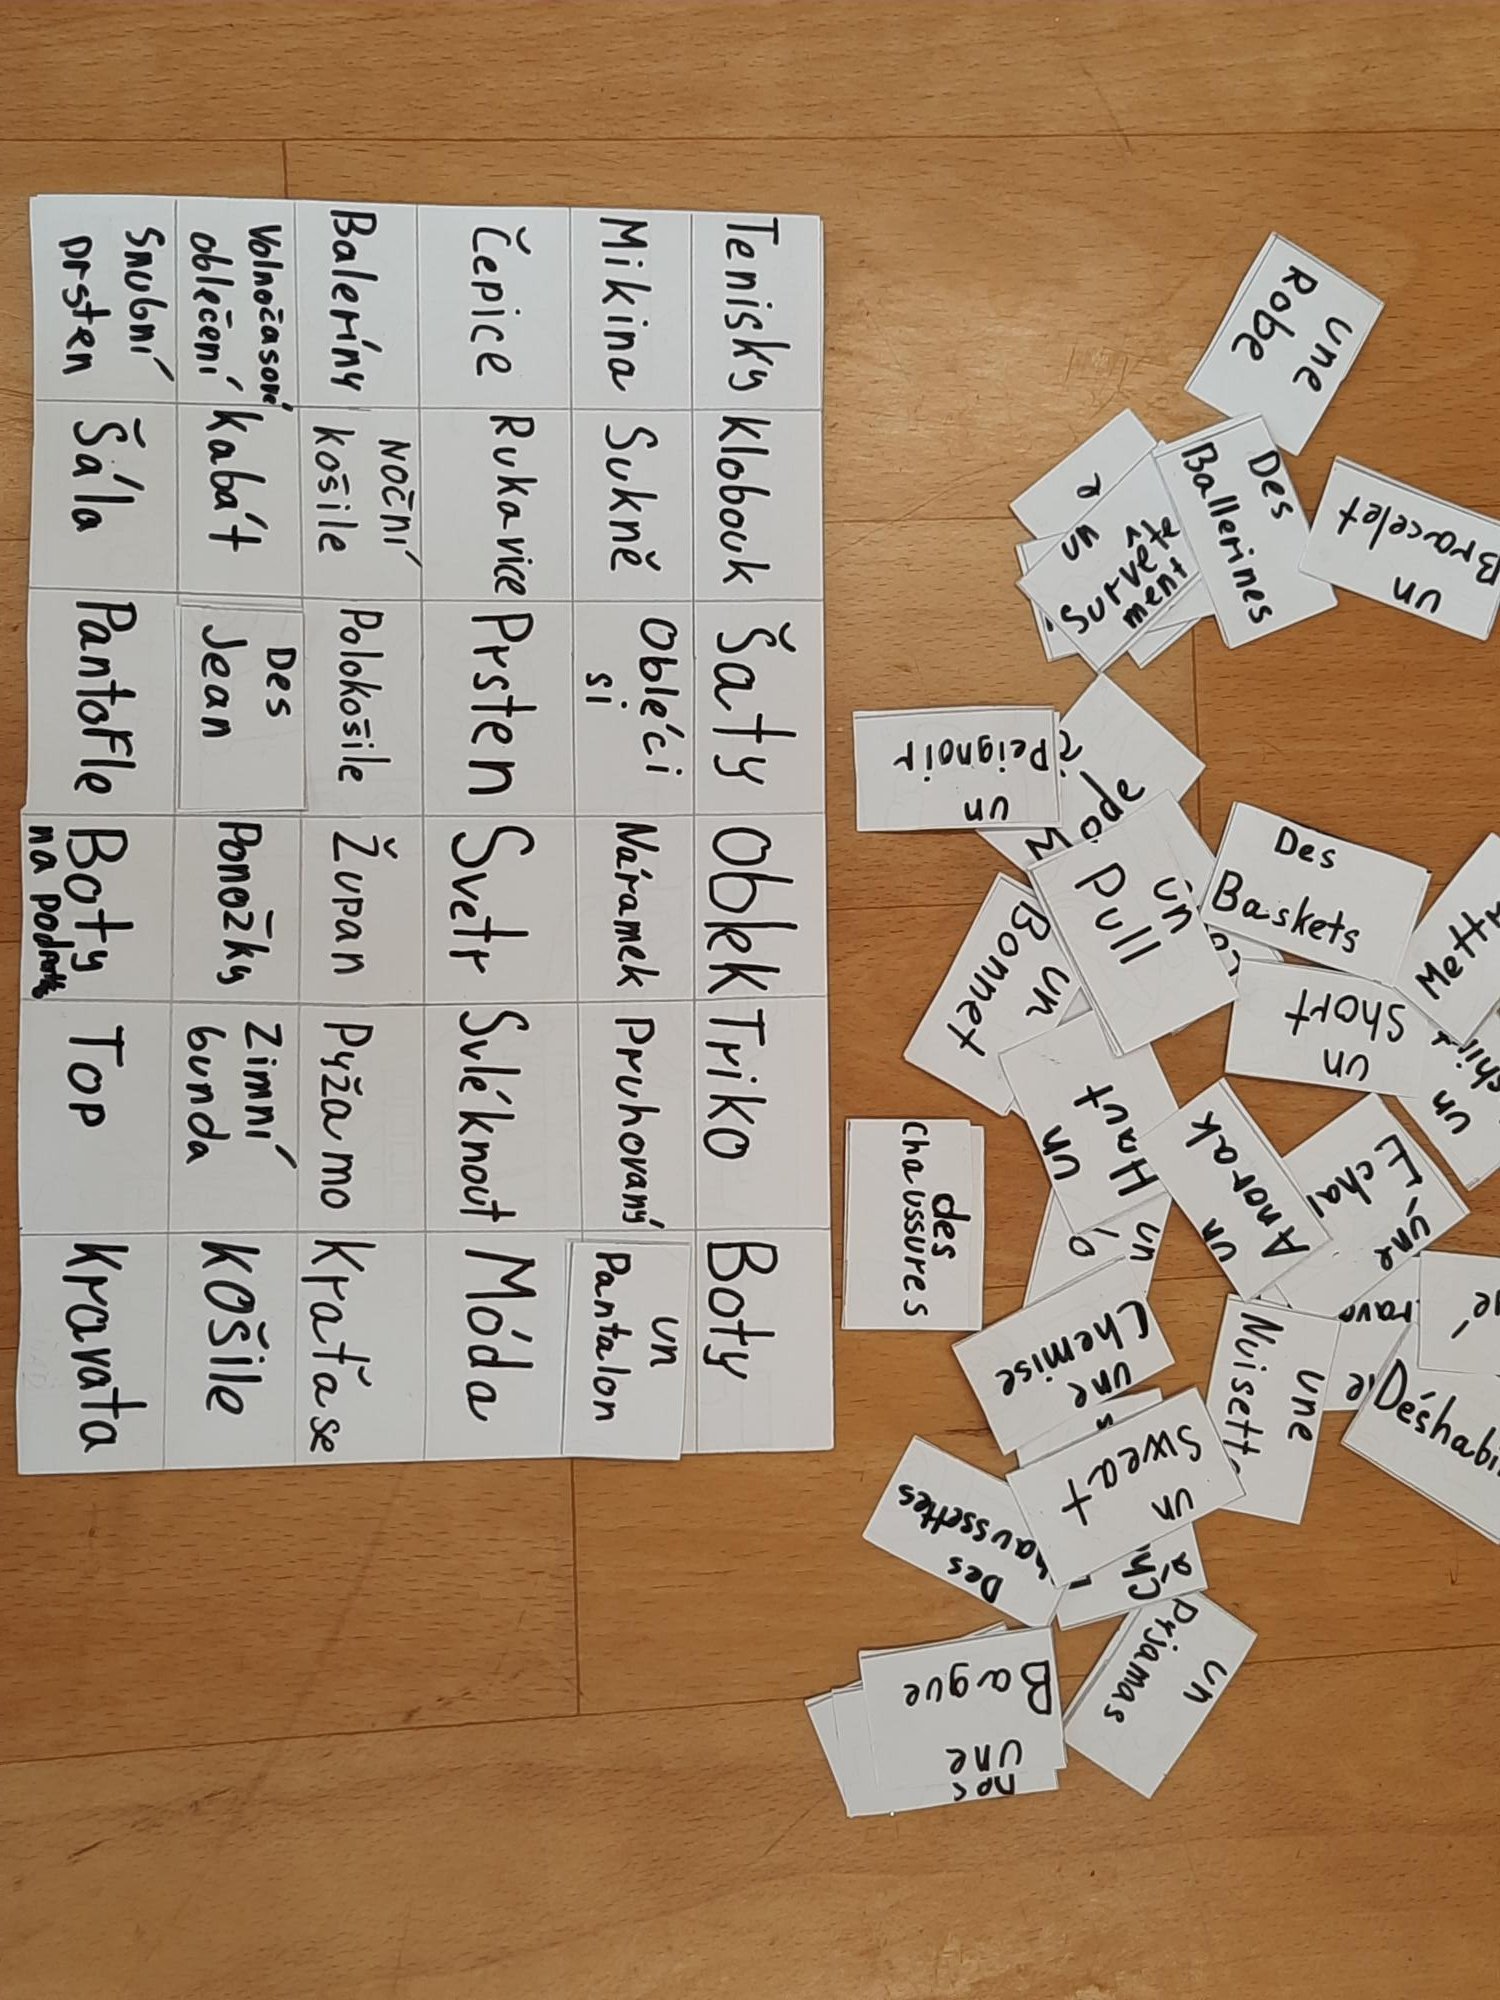 Tenisky
Klobouk
Šaty
Oblek
Triko
Boty
Mikina
Sukně
Obléci
si
Náramek
Pruhovaný
un
Pantalon
Čepice
Rukavice
Prsten
Svetr
Svléknout
Móda
Baleríny
Noční
košile
Polokošile
Župan
Pyžamo
Kraťase
Volnočasové
oblečení
Kabát
Des
Jean
Ponožky
Zimní
bunda
KOŠile
Snubní
prsten
Šála
Pantofle
Boty
na
Top
Kravata
une
Robe
Des
Ballerines
un
Bracelet
un
Survête
ment
un
Peignoir
un
Pull
Des
Baskets
un
Bonnet
un
Short
un
Haut
un
Anorak
une
des
chaussures
un
une
Chemise
une
un
Sweat
Des
un
Pyjamas
une
Bague